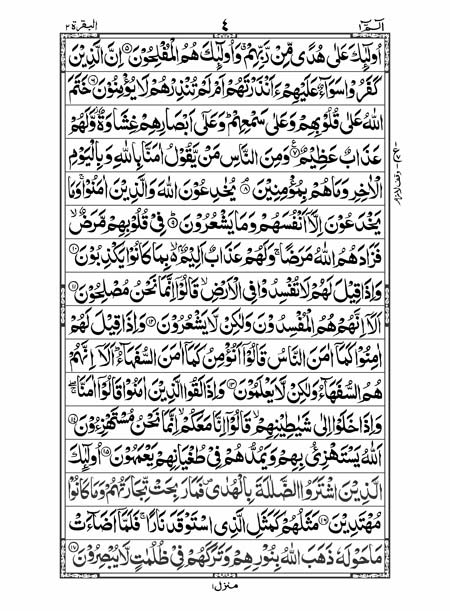 الٓمّٓ ١ ٤ البقرة ٢
اُولٰٓئِكَ عَلٰى هُدًى مِّنْ رَّبِّهِمْ ۗ وَاُولٰٓئِكَ هُمُ الْمُفْلِحُوْنَ ۝٥ اِنَّ الَّذِيْنَ
كَفَرُوْا سَوَآءٌ عَلَيْهِمْ ءَاَنْذَرْتَهُمْ اَمْ لَمْ تُنْذِرْهُمْ لَا يُؤْمِنُوْنَ ۝٦ خَتَمَ
اللّٰهُ عَلٰى قُلُوْبِهِمْ وَعَلٰى سَمْعِهِمْ ۗ وَعَلٰٓى اَبْصَارِهِمْ غِشَاوَةٌ ۫ وَّلَهُمْ
عَذَابٌ عَظِيْمٌ ۝٧ وَمِنَ النَّاسِ مَنْ يَّقُوْلُ اٰمَنَّا بِاللّٰهِ وَبِالْيَوْمِ
الْاٰخِرِ وَمَا هُمْ بِمُؤْمِنِيْنَ ۝٨ يُخٰدِعُوْنَ اللّٰهَ وَالَّذِيْنَ اٰمَنُوْا ۚ وَمَا
يَخْدَعُوْنَ اِلَّآ اَنْفُسَهُمْ وَمَا يَشْعُرُوْنَ ۝٩ فِيْ قُلُوْبِهِمْ مَّرَضٌ ۙ
فَزَادَهُمُ اللّٰهُ مَرَضًا ۚ وَلَهُمْ عَذَابٌ اَلِيْمٌ ۙ بِمَا كَانُوْا يَكْذِبُوْنَ ۝١٠
وَاِذَا قِيْلَ لَهُمْ لَا تُفْسِدُوْا فِى الْاَرْضِ ۙ قَالُوْٓا اِنَّمَا نَحْنُ مُصْلِحُوْنَ ۝١١
اَلَآ اِنَّهُمْ هُمُ الْمُفْسِدُوْنَ وَلٰكِنْ لَّا يَشْعُرُوْنَ ۝١٢ وَاِذَا قِيْلَ لَهُمْ
اٰمِنُوْا كَمَآ اٰمَنَ النَّاسُ قَالُوْٓا اَنُؤْمِنُ كَمَآ اٰمَنَ السُّفَهَآءُ ۗ اَلَآ اِنَّهُمْ
هُمُ السُّفَهَآءُ وَلٰكِنْ لَّا يَعْلَمُوْنَ ۝١٣ وَاِذَا لَقُوا الَّذِيْنَ اٰمَنُوْا قَالُوْٓا اٰمَنَّا ۖ
وَاِذَا خَلَوْا اِلٰى شَيٰطِيْنِهِمْ ۙ قَالُوْٓا اِنَّا مَعَكُمْ ۙ اِنَّمَا نَحْنُ مُسْتَهْزِءُوْنَ ۝١٤
اَللّٰهُ يَسْتَهْزِئُ بِهِمْ وَيَمُدُّهُمْ فِيْ طُغْيَانِهِمْ يَعْمَهُوْنَ ۝١٥ اُولٰٓئِكَ
الَّذِيْنَ اشْتَرَوُا الضَّلٰلَةَ بِالْهُدٰى ۪ فَمَا رَبِحَتْ تِّجَارَتُهُمْ وَمَا كَانُوْا
مُهْتَدِيْنَ ۝١٦ مَثَلُهُمْ كَمَثَلِ الَّذِى اسْتَوْقَدَ نَارًا ۚ فَلَمَّآ اَضَآءَتْ
مَا حَوْلَهٗ ذَهَبَ اللّٰهُ بِنُوْرِهِمْ وَتَرَكَهُمْ فِيْ ظُلُمٰتٍ لَّا يُبْصِرُوْنَ ۝١٧
منزل ١